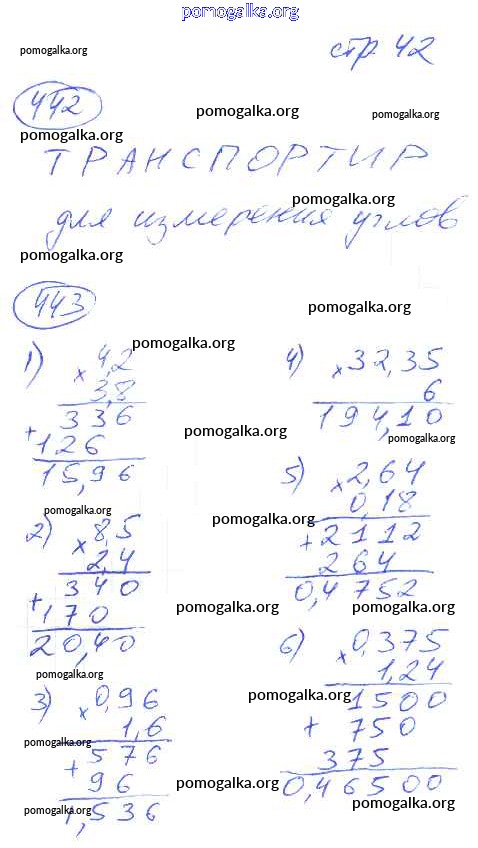 pomogalka.org
pomogalka.org
стр 42
442
pomogalka.org
pomogalka.org
pomogalka.org
ТРАНСПОРТИР
pomogalka.org
для измерения углов
pomogalka.org
443
pomogalka.org
pomogalka.org
1) × 4,2
3,8
+ 336
126
15,96
pomogalka.org
2) × 8,5
2,4
+ 340
170
20,40
pomogalka.org
3) × 0,96
1,6
+ 576
96
1,536
pomogalka.org
pomogalka.org
4) × 32,35
6
194,10
pomogalka.org
5) × 2,64
0,18
+ 2112
264
0,4752
pomogalka.org
pomogalka.org
pomogalka.org
6) × 0,375
1,24
1500
+ 750
375
0,46500
pomogalka.org
pomogalka.org
pomogalka.org
pomogalka.org